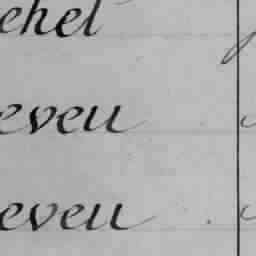 ehel
eveu
eveu